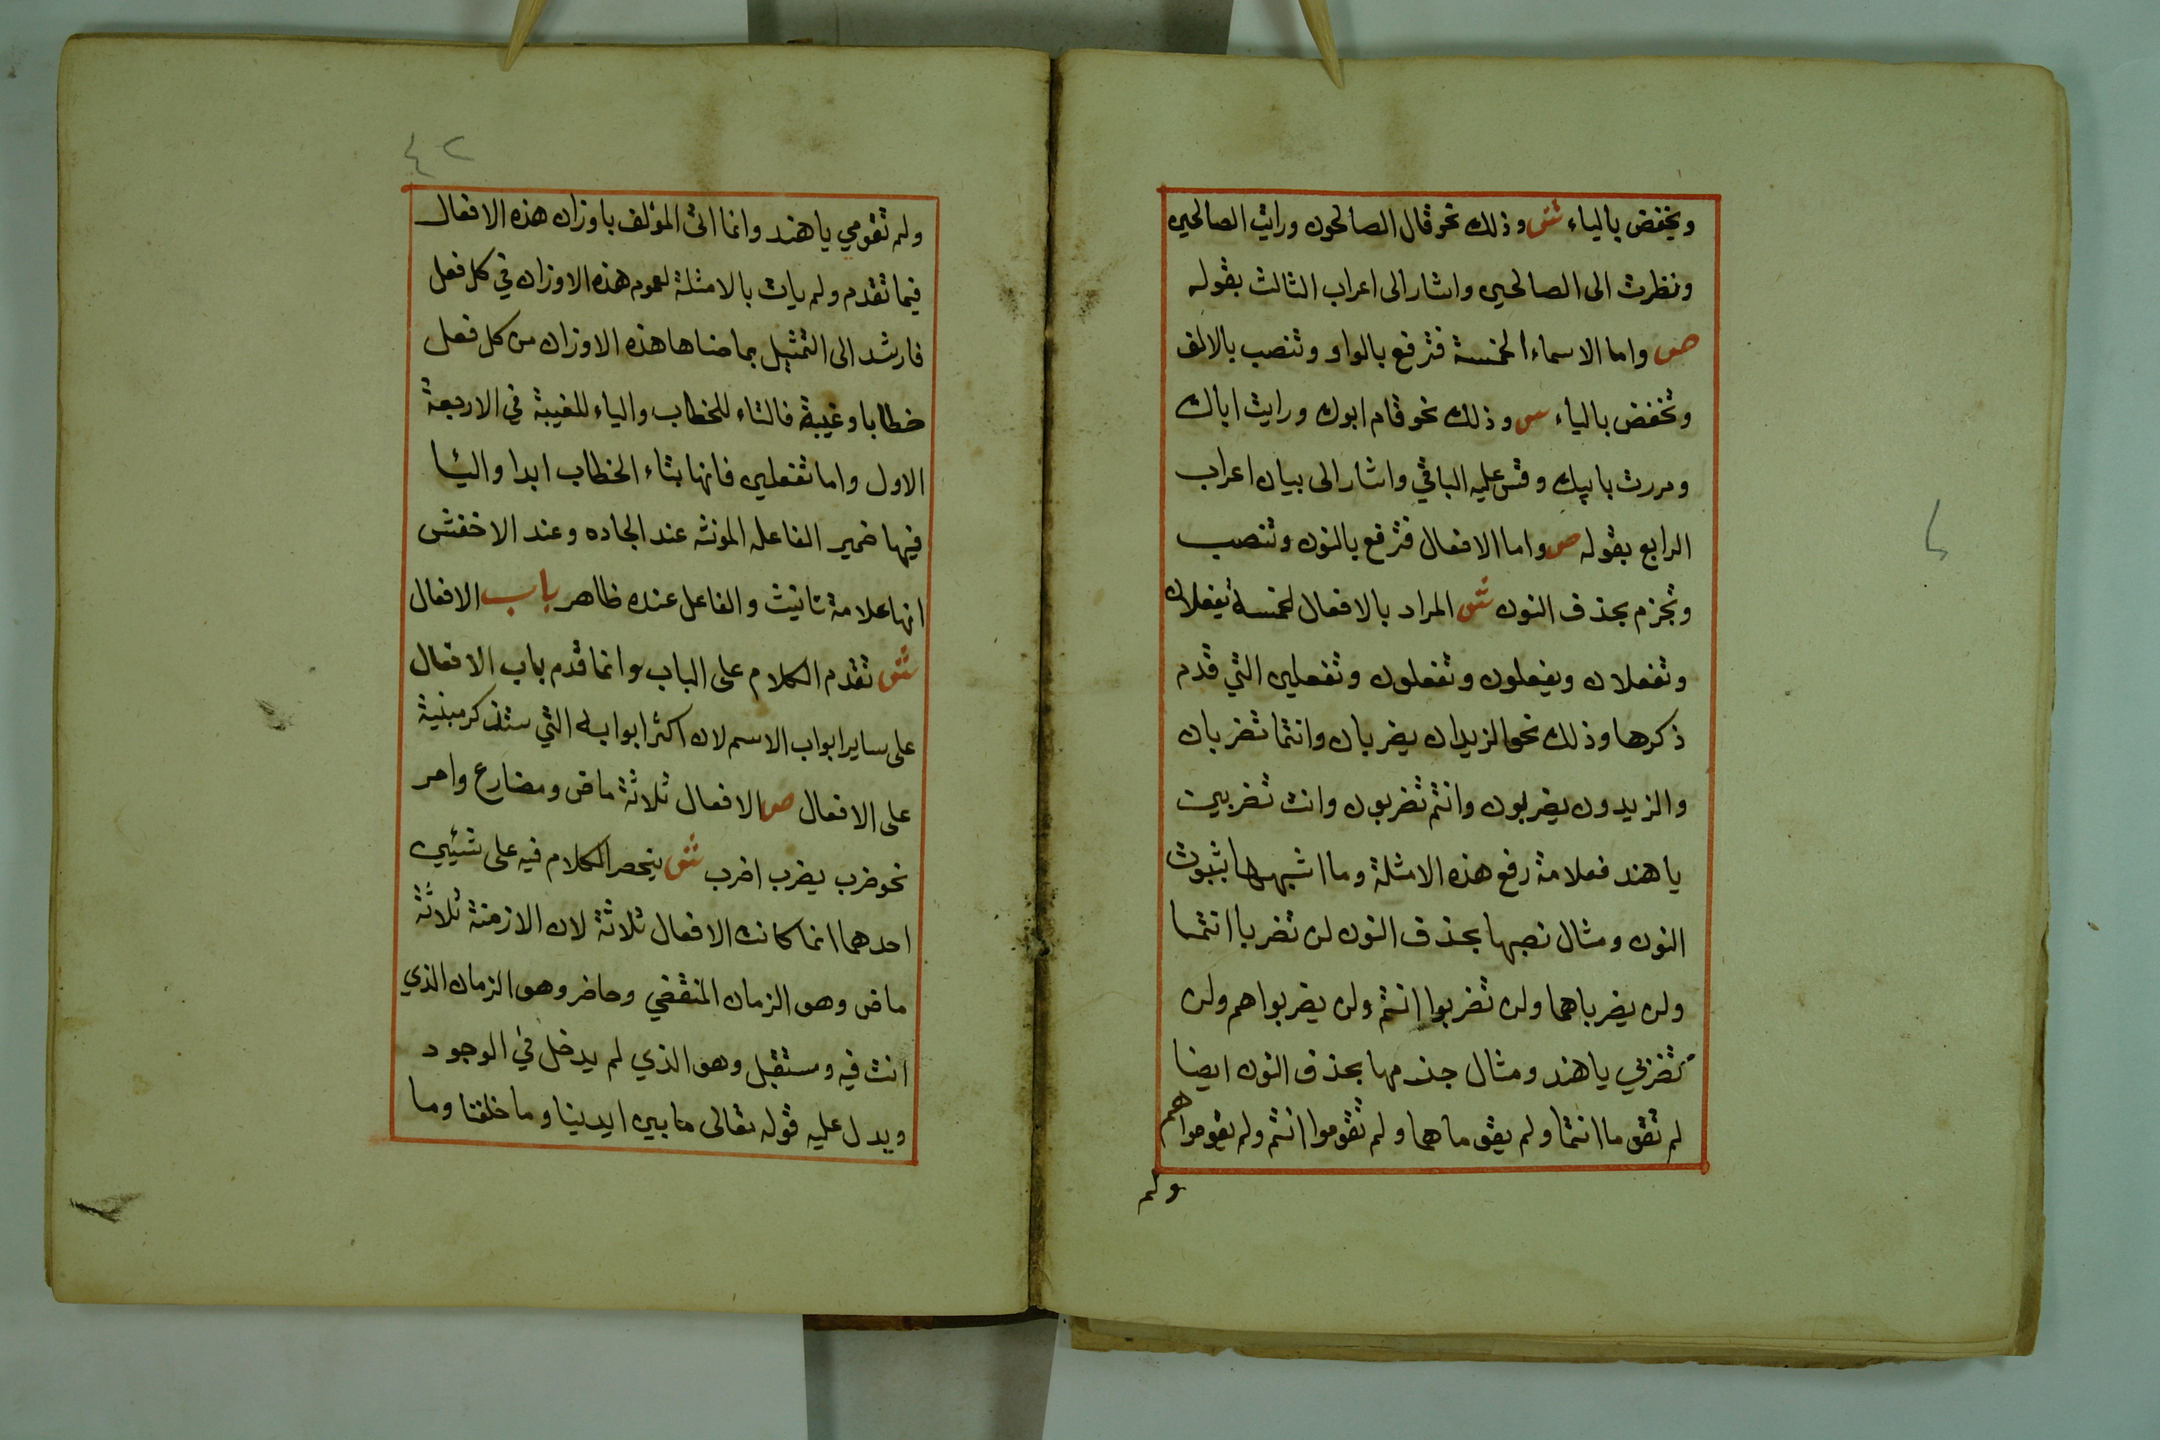 ويخفض بالياء ش وذلك نحو قال الصالحون ورايت الصالحين
ونظرت الى الصالحين واشار الى اعراب الثالث بقوله
ص واما الاسماء الخمسة فترفع بالواو وتنصب بالالف
وتخفض بالياء ش وذلك نحو قام ابوك ورايت اباك
ومررت بابيك وقس عليه الباقي واشار الى بيان اعراب
الرابع بقوله ص واما الافعال فترفع بالنون وتنصب
وتجزم بحذف النون ش المراد بالافعال الخمسة يفعلان
وتفعلان ويفعلون وتفعلون وتفعلين التي قدم
ذكرها وذلك نحو الزيدان يضربان وانتما تضربان
والزيدون يضربون وانتم تضربون وانت تضربين
يا هند فعلامة رفع هذه الامثلة وما اشبهها بثبوت
النون ومثال نصبها بحذف النون لن تضربا انتما
ولن يضربا هما ولن تضربوا انتم ولن يضربوا هم ولن
تضربي يا هند ومثال جزمها بحذف النون ايضا
لم تقوما انتما ولم يقوما هما ولم تقوموا انتم ولم يقوموا هم
ولم
٤٢
ولم تقومي يا هند وانما اتى المؤلف باوزان هذه الافعال
فيما تقدم ولم يات بالامثلة لعموم هذه الاوزان في كل فعل
فارشد الى التمثيل بما ضاهاهذه الاوزان من كل فعل
خطابا وغيبة فالتاء للخطاب والياء للغيبة في الاربعة
الاول واما تفعلين فانها بتاء الخطاب ابدا واليا
فيها ضمير الفاعله المونثه عند الجاده وعند الاخفش
انها علامة تانيث والفاعل عنده ظاهر باب الافعال
ش تقدم الكلام على الباب وانما قدم باب الافعال
على ساير ابواب الاسم لان اكثر ابوابه التي ستذكر مبنية
على الافعال ص الافعال ثلاثة ماض ومضارع وامر
نحو ضرب يضرب اضرب ش ينحصر الكلام فيه على شيئين
احدهما انما كانت الافعال ثلاثة لان الازمنة ثلاثة
ماض وهو الزمان المنقضي وحاضر وهو الزمان الذي
انت فيه ومستقبل وهو الذي لم يدخل في الوجود
ويدل عليه قوله تعالى ما بين ايدينا وما خلفنا وما